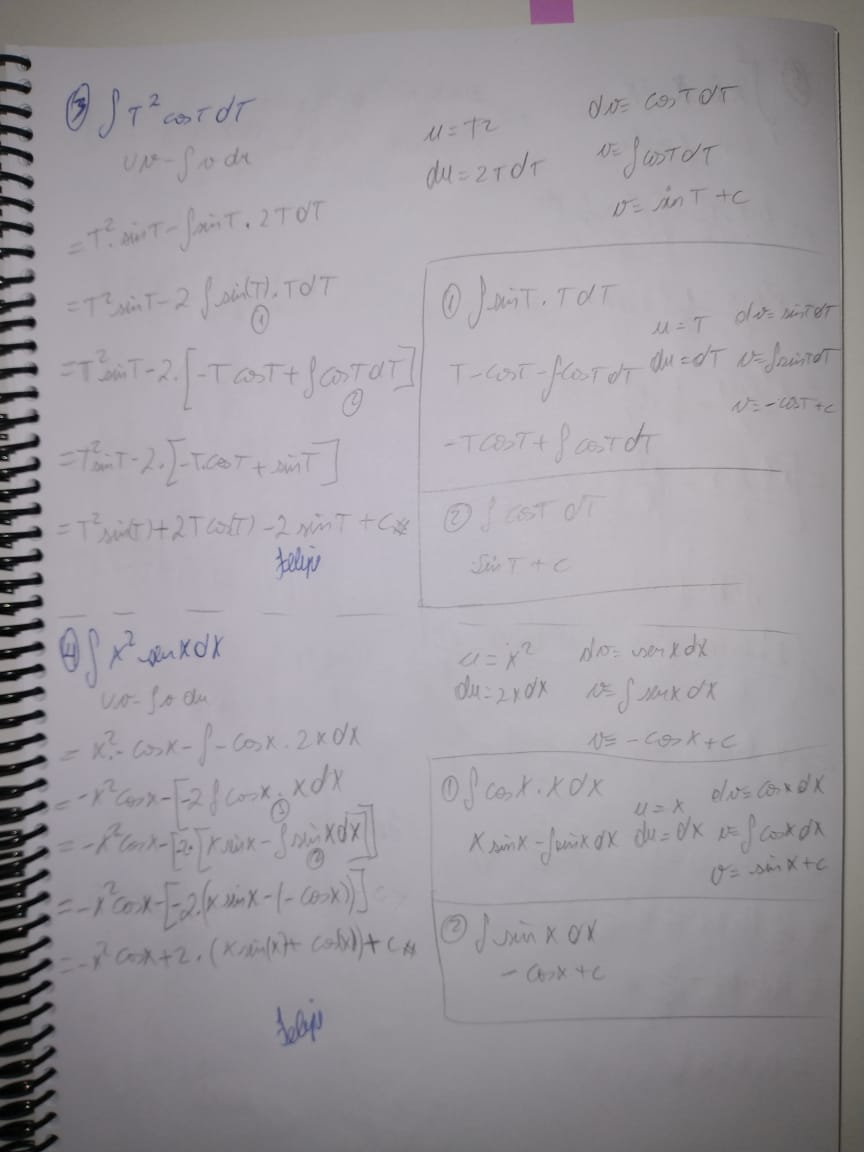 ③ ∫ T² cosT dT
uv - ∫ v du
u = T²
du = 2T dT
dv = cosT dT
v = ∫ cosT dT
v = sinT + c
= T² . sinT - ∫ sinT . 2T dT
= T² sinT - 2 ∫ sin(T) . T dT
①
= T² sinT - 2 . [-T cosT + ∫ cosT dT]
②
= T² sinT - 2 . [-T.cosT + sinT]
= T² sin(T) + 2T cos(T) - 2 sinT + C
Felipe
① ∫ sinT . T dT
u = T
du = dT
dv = sinT dT
v = ∫ sinT dT
v = -cosT + c
T - cosT - ∫ cosT dT
-T cosT + ∫ cosT dT
② ∫ cosT dT
sin T + c
④ ∫ x² senx dx
uv - ∫ v du
u = x²
du = 2x dx
dv = senx dx
v = ∫ senx dx
v = -cosx + c
= x² . - cosx - ∫ - cosx . 2x dx
= -x² cosx - [-2 ∫ cosx . x dx
①
= -x² cosx - [-2 . [x sinx - ∫ sinx dx]]
②
= -x² cosx - [-2 . (x sinx - (-cosx))]
= -x² cosx + 2 . (x sin(x) + cos(x)) + c
Felipe
① ∫ cosx . x dx
u = x
du = dx
dv = cosx dx
v = ∫ cosx dx
v = sinx + c
x sinx - ∫ sinx dx
② ∫ sinx dx
- cosx + c